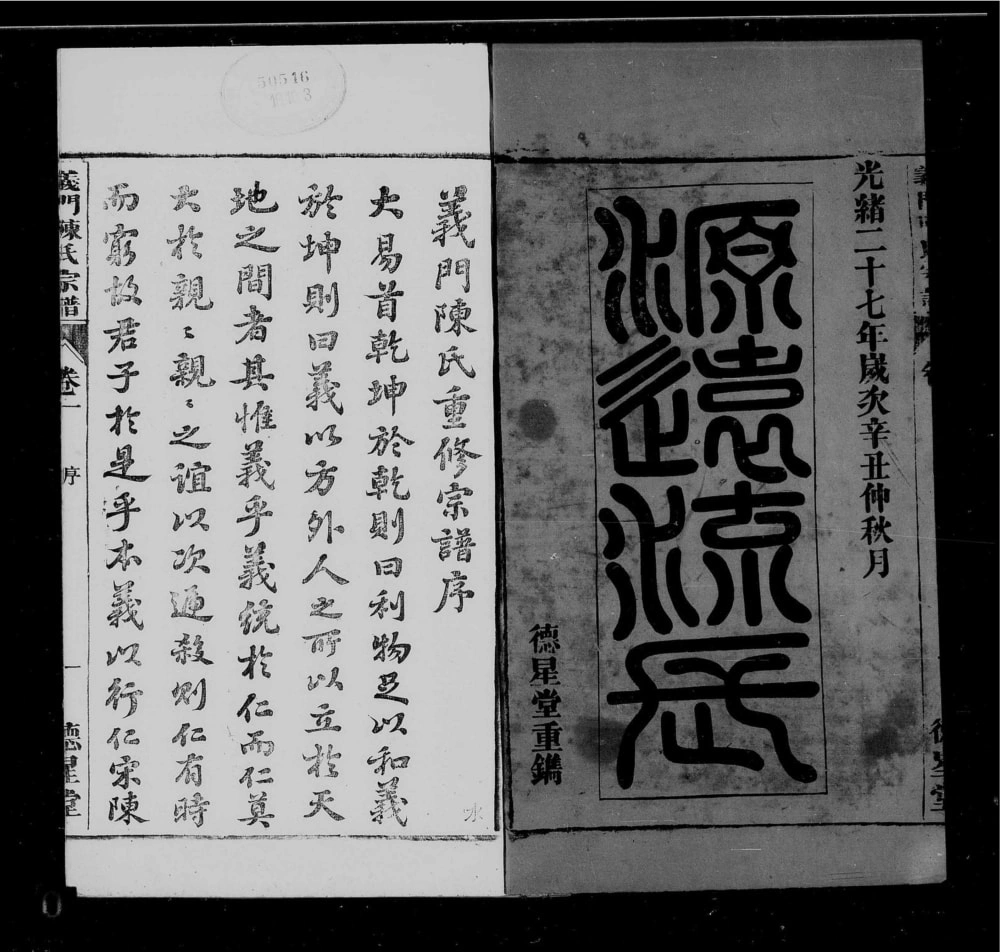 光緒二十七年歲次辛丑仲秋月
源遠流長
德星堂重鐫
50516
義門陳氏重修宗譜序
大易首乾坤於乾則曰利物足以和義
於坤則曰義以方外人之所以立於天
地之間者其惟義乎義統於仁而仁莫
大於親〻親〻之誼以次遞殺則仁有時
而窮故君子於是乎本義以行仁宋陳
義門陳氏宗譜 卷一 序 一 德星堂